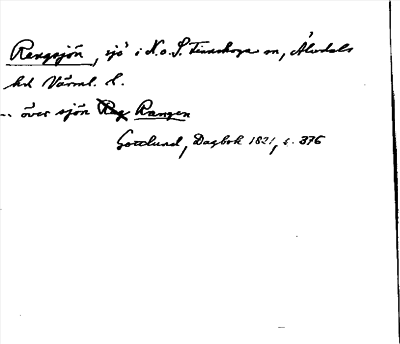 Rangsjön, sjö i N. o. S. Finnskoga sn, Älvdals
hd Värml. L.
.. över sjön Rag Rangen
Gottlund, Dagbok 1821, s. 376